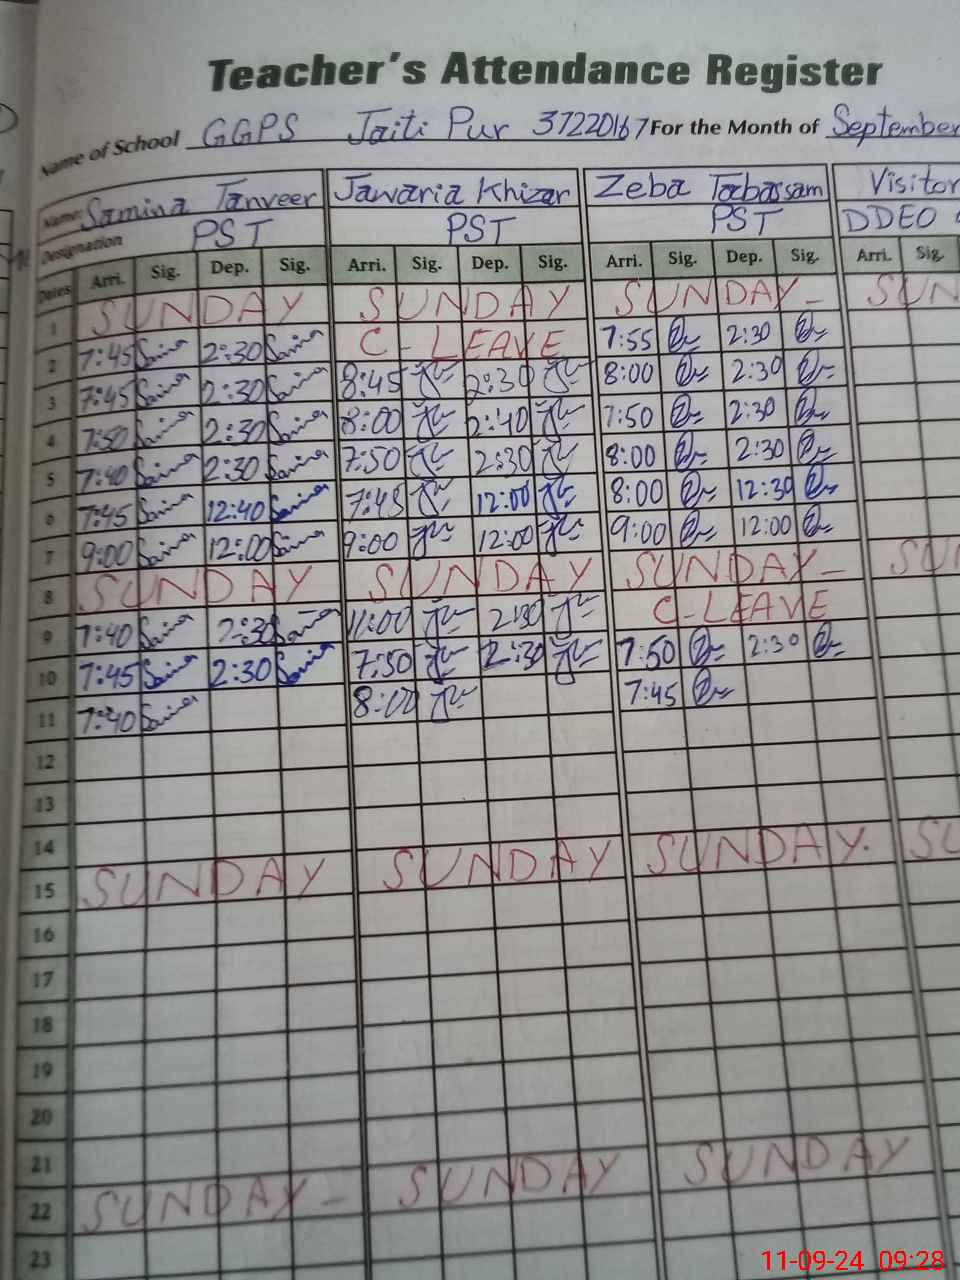 Teacher's Attendance Register
Name of School GGPS Jaiti Pur 37220167 For the Month of September
Name: Samina Tanveer Jawaria Khizar Zeba Tabassam Visitor
Designation PST PST PST DDEO
Dates Arri. Sig. Dep. Sig. Arri. Sig. Dep. Sig. Arri. Sig. Dep. Sig. Arri. Sig.
1 SUNDAY SUNDAY SUNDAY- SUN
2 7:45 2:30 C-LEAVE 7:55 2:30
3 7:45 2:30 8:45 2:30 8:00 2:30
4 7:50 2:30 8:00 2:40 7:50 2:30
5 7:40 2:30 7:50 2:30 8:00 2:30
6 7:45 12:40 7:45 12:00 8:00 12:30
7 9:00 12:00 9:00 12:00 9:00 12:00
8 SUNDAY SUNDAY SUNDAY- SUN
9 7:40 2:30 11:00 2:30 C-LEAVE
10 7:45 2:30 7:50 2:30 7:50 2:30
11 7:40 8:00 7:45
12
13
14
15 SUNDAY SUNDAY SUNDAY. SU
16
17
18
19
20
21
22 SUNDAY- SUNDAY SUNDAY
23
11-09-24 09:28